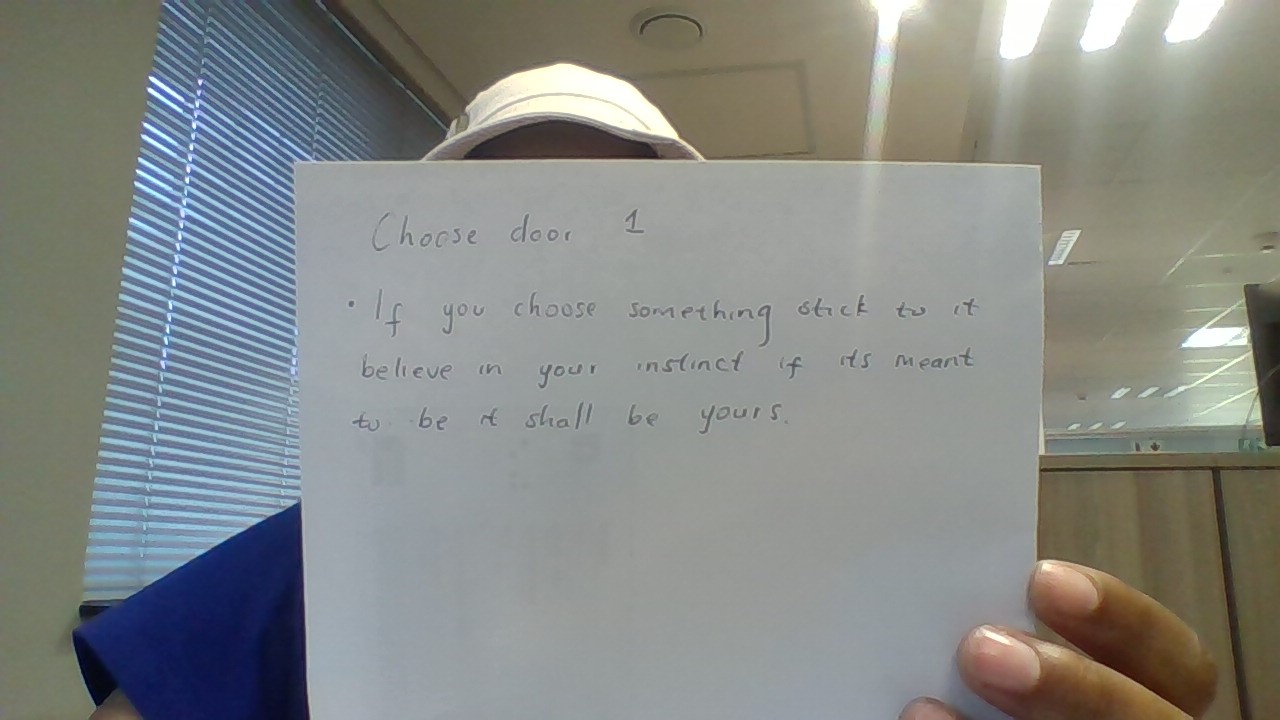 Choose door 1
• If you choose something stick to it
believe in your instinct if its meant
to be it shall be yours.